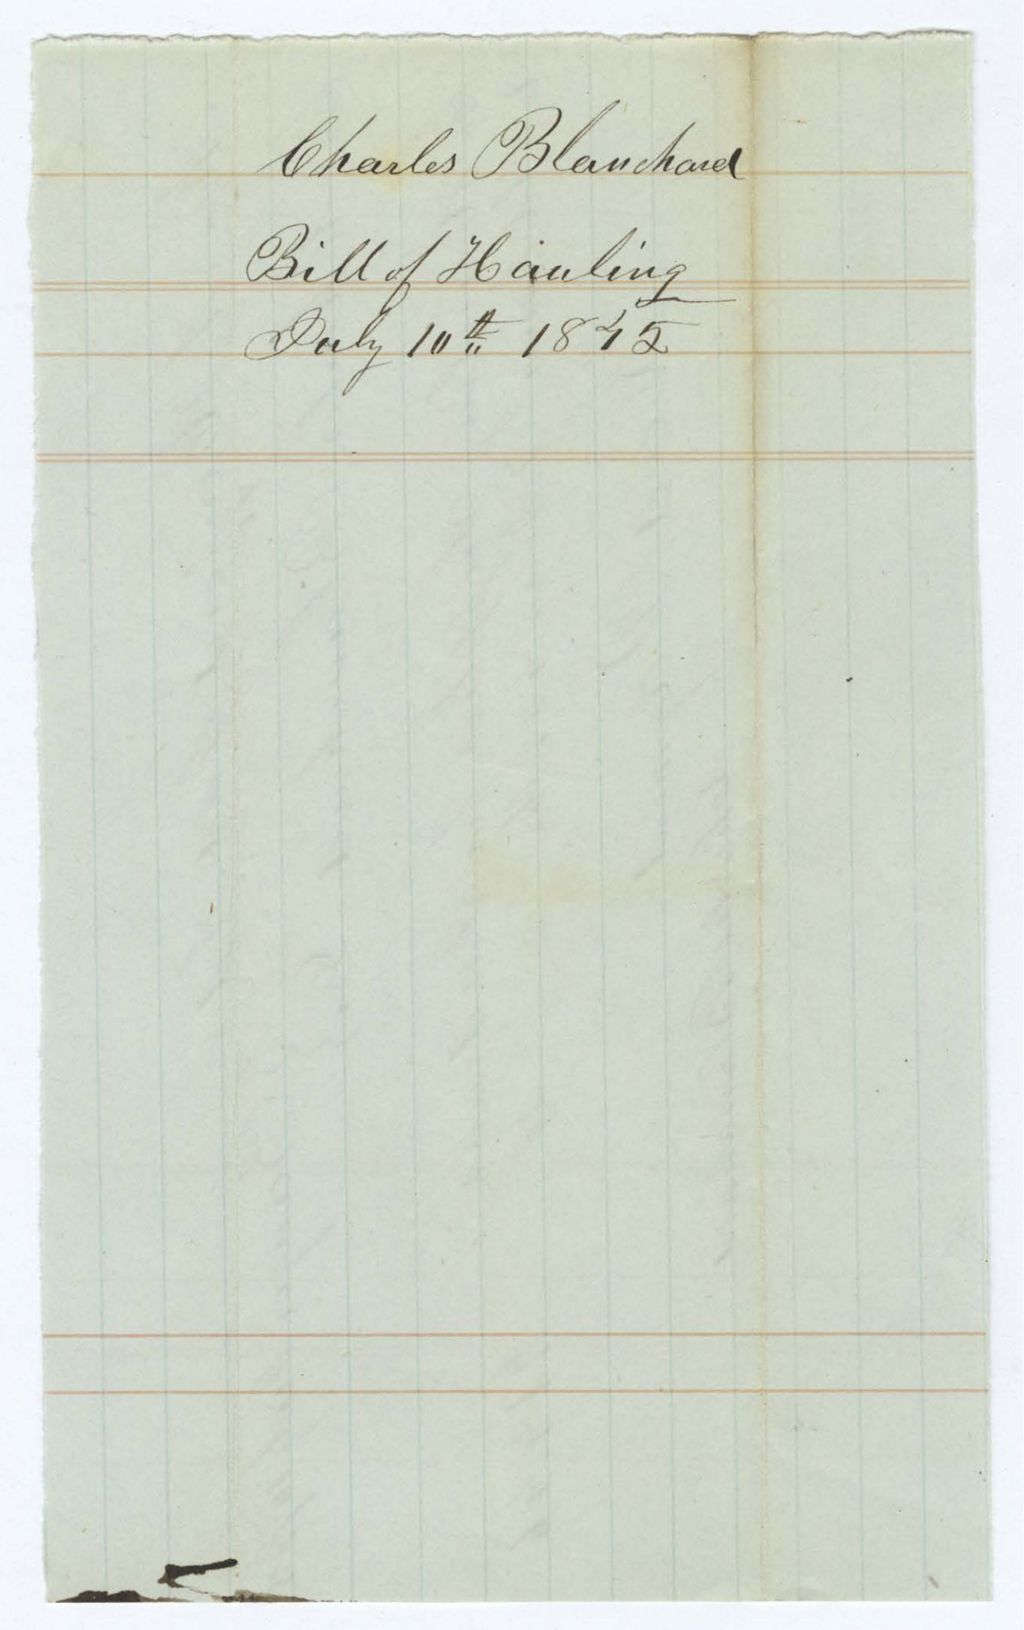 Charles Blanchard
Bill of Hauling
July 10th 1845